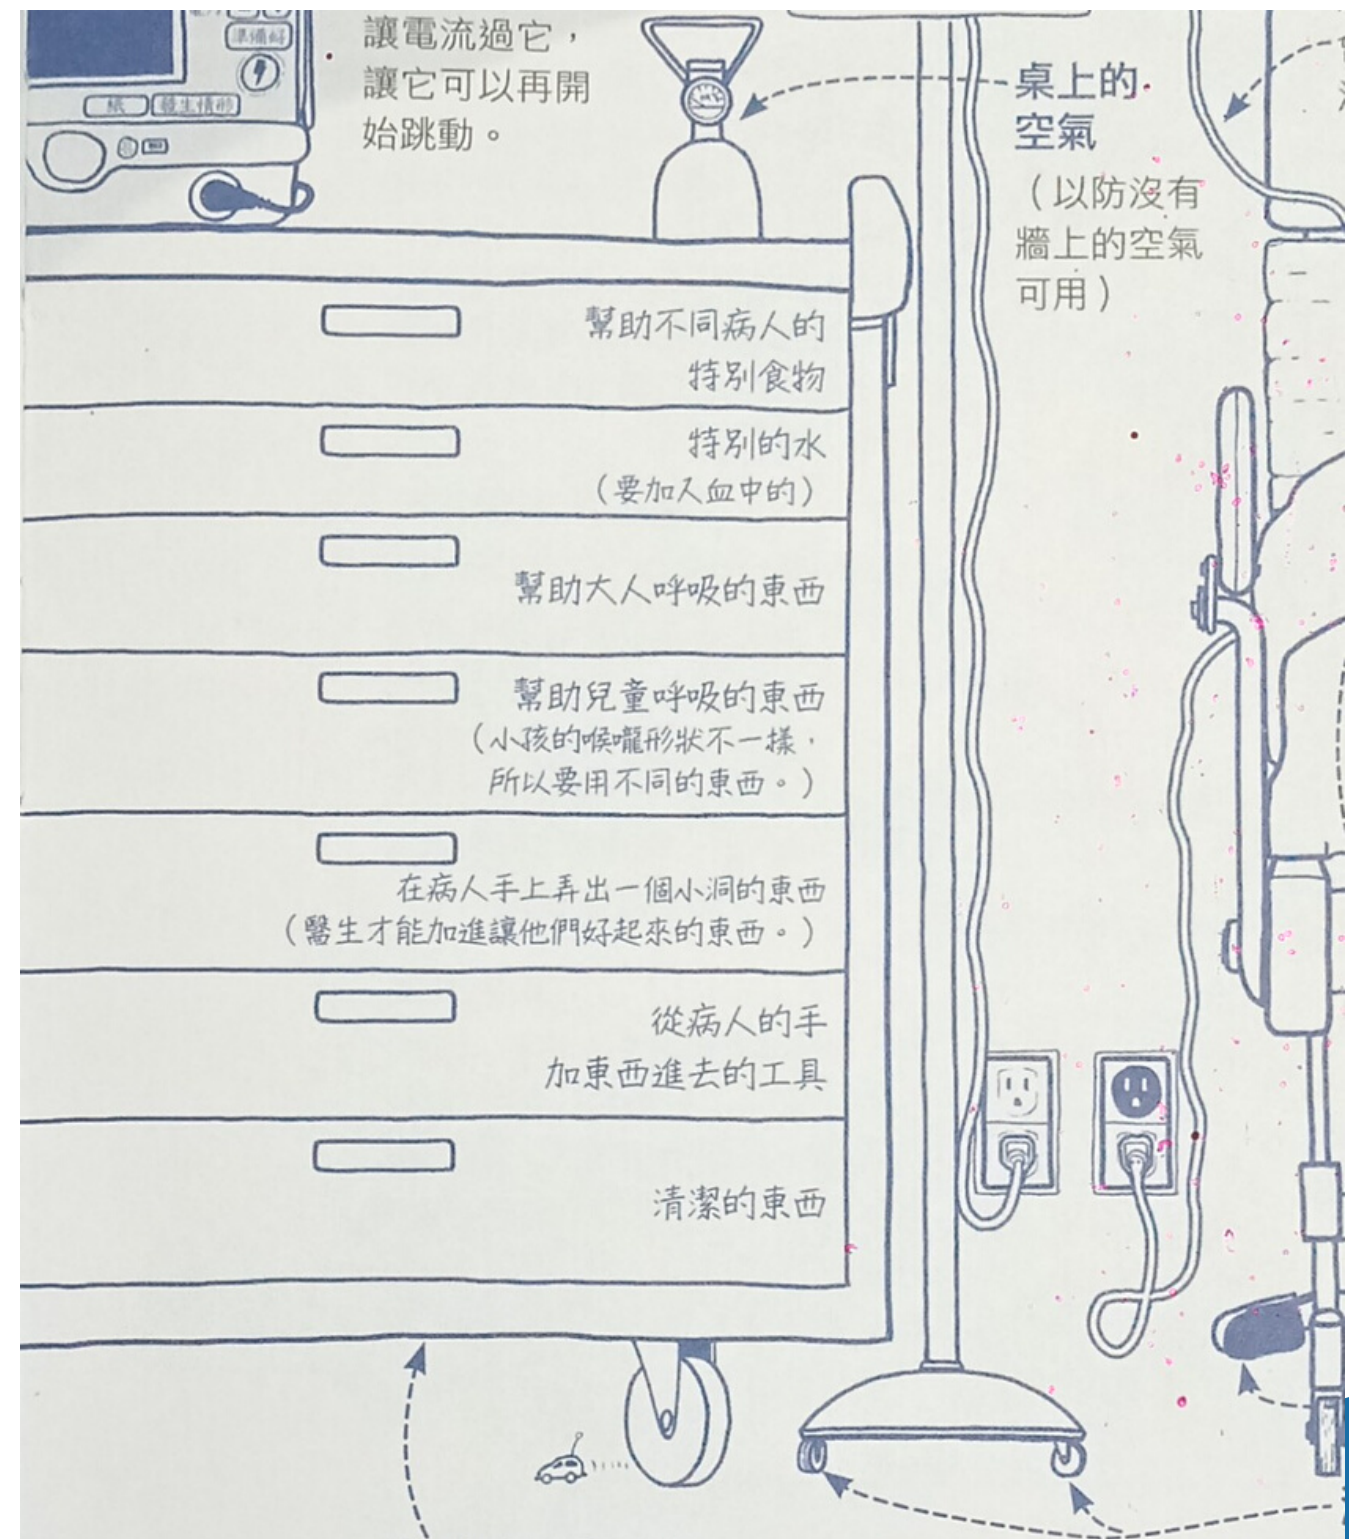 準備好
紙
發生情形
讓電流過它，
讓它可以再開
始跳動。
桌上的
空氣
（以防沒有
牆上的空氣
可用）
幫助不同病人的
特別食物
特別的水
（要加入血中的）
幫助大人呼吸的東西
幫助兒童呼吸的東西
（小孩的喉嚨形狀不一樣，
所以要用不同的東西。）
在病人手上弄出一個小洞的東西
（醫生才能加進讓他們好起來的東西。）
從病人的手
加東西進去的工具
清潔的東西